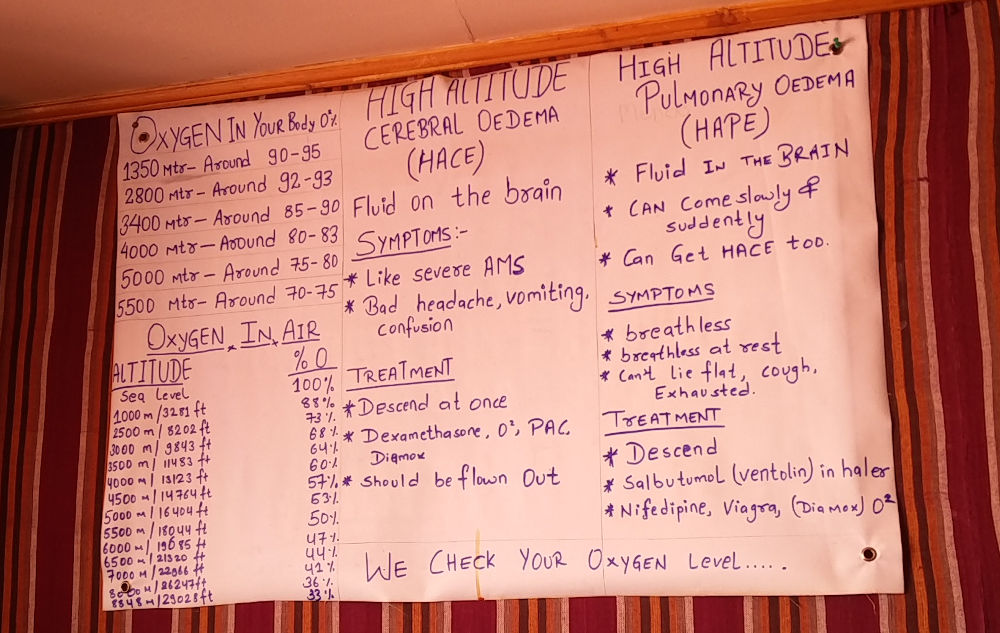 OXYGEN IN YOUR Body O²%
1350 Mtr- Around 90-95
2800 mtr- Around 92-93
3400 mtr- Around 85-90
4000 Mtr- Around 80-83
5000 mtr- Around 75-80
5500 Mtr- Around 70-75
OXYGEN IN AIR
ALTITUDE % O
Sea Level 100%
1000m/3281 ft 88%
2500m/8202 ft 73%
3000 m/9843 ft 68%
3500 m/11483 ft 64%
4000 m/13123 ft 60%
4500 m/14764 ft 57%
5000 m/16404 ft 53%
5500 m/18044 ft 50%
6000 m/19685 ft 47%
6500 m/21320 ft 44%
7000 M/22966 ft 41%
8000 M/26247ft 36%
8848 M/29028 ft 33%
HIGH ALTITUDE
CEREBRAL OEDEMA
(HACE)
Fluid on the brain
SYMPTOMS:-
* Like severe AMS
* Bad headache, vomiting,
confusion
TREATMENT
* Descend at once
* Dexamethasone, O², PAC,
Diamox
* Should be flown Out
HIGH ALTITUDE
PULMONARY OEDEMA
(HAPE)
* Fluid IN THE BRAIN
* CAN Come slowly &
suddently
* Can Get HACE too.
SYMPTOMS
* breathless
* breathless at rest
* Can't lie flat, cough,
Exhausted.
TREATMENT
* Descend
* Salbutumol (ventolin) in haler
* Nifedipine, Viagra, (Diamox) O²
WE CHECK YOUR OXYGEN Level.....